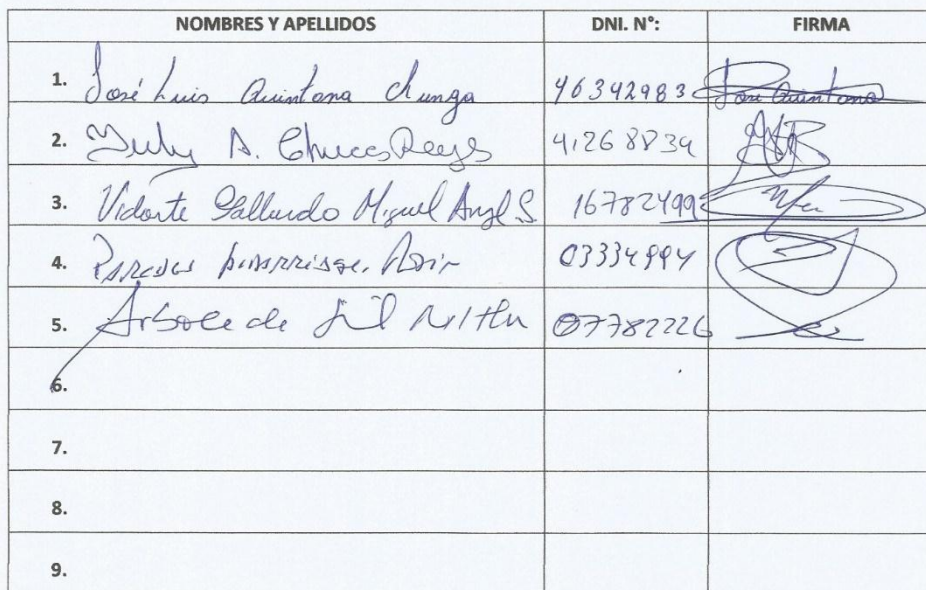 NOMBRES Y APELLIDOS DNI. N°: FIRMA
1. José Luis Quintana Chunga 46342983 José Quintana
2. July A. Chucas Reyes 41268839
3. Vidarte Gallardo Miguel Angel S. 16782499
4. Paredes 03334994
5. Arboleda Gil 07782226
6.
7.
8.
9.